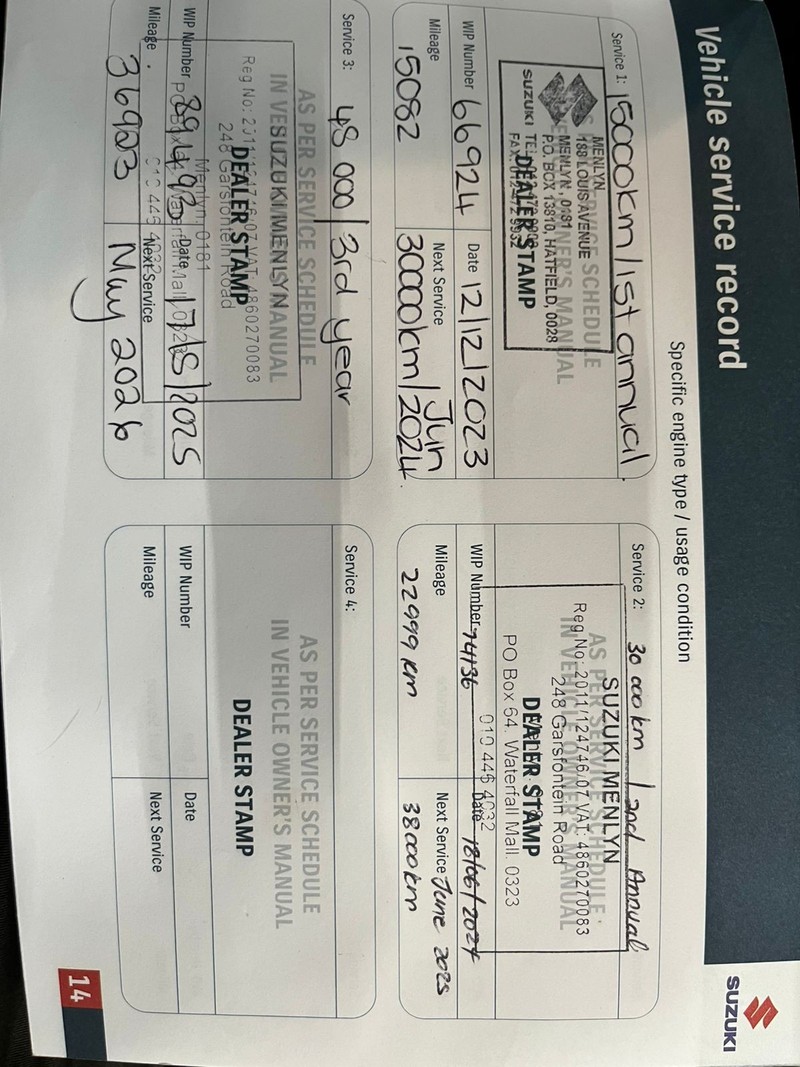 Vehicle service record
SUZUKI
Specific engine type / usage condition
Service 1: 15000km/1st annual
AS PER SERVICE SCHEDULE
IN VEHICLE OWNER'S MANUAL
MENLYN
188 LOUIS AVENUE
MENLYN, 0181
P.O. BOX 13810, HATFIELD, 0028
SUZUKI
DEALER STAMP
WIP Number 66924
Date 12/12/2023
Mileage 15082
Next Service 30000km/Jun 2024
Service 2: 30 000km / 2nd Annual
AS PER SERVICE SCHEDULE
IN VEHICLE OWNER'S MANUAL
SUZUKI MENLYN
Reg No: 2011/124746/07 VAT: 4860270083
248 Garsfontein Road
DEALER STAMP
PO Box 64, Waterfall Mall, 0323
010 446 4032
WIP Number 74136
Date 18/06/2024
Mileage 22999 km
Next Service June 2025
38000km
Service 3: 48 000/3rd year
AS PER SERVICE SCHEDULE
SUZUKI MENLYN
248 Garsfontein Road
DEALER STAMP
Menlyn, 0181
WIP Number
Date /5/2025
Mileage 36903
Next Service May 2026
Service 4:
AS PER SERVICE SCHEDULE
IN VEHICLE OWNER'S MANUAL
DEALER STAMP
WIP Number
Date
Mileage
Next Service
14